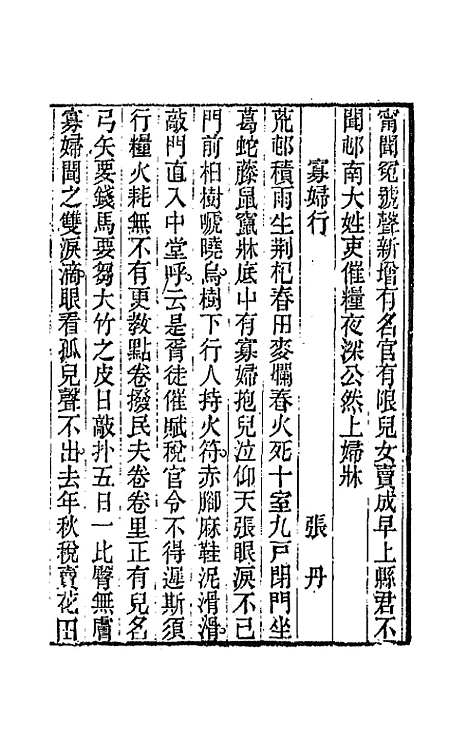 甯聞冤號聲新增有名官有限兒女賣成早上縣君不
聞邨南大姓吏催糧夜深公然上婦牀
寡婦行　張丹
荒邨積雨生荆杞春田麥爛春火死十室九戸閉門坐
葛蛇藤鼠竄牀底中有寡婦抱兒泣仰天張眼淚不已
門前柏樹嘑曉烏樹下行人持火符赤腳麻鞋泥滑滑
敲門直入中堂呼云是胥徒催賦稅官令不得遲斯須
行糧火耗無不有更敎點卷撥民夫卷卷里正有兒名
弓矢要錢馬要芻大竹之皮日敲扑五日一比臀無膚
寡婦聞之雙淚滴眼看孤兒聲不出去年秋稅賣花田